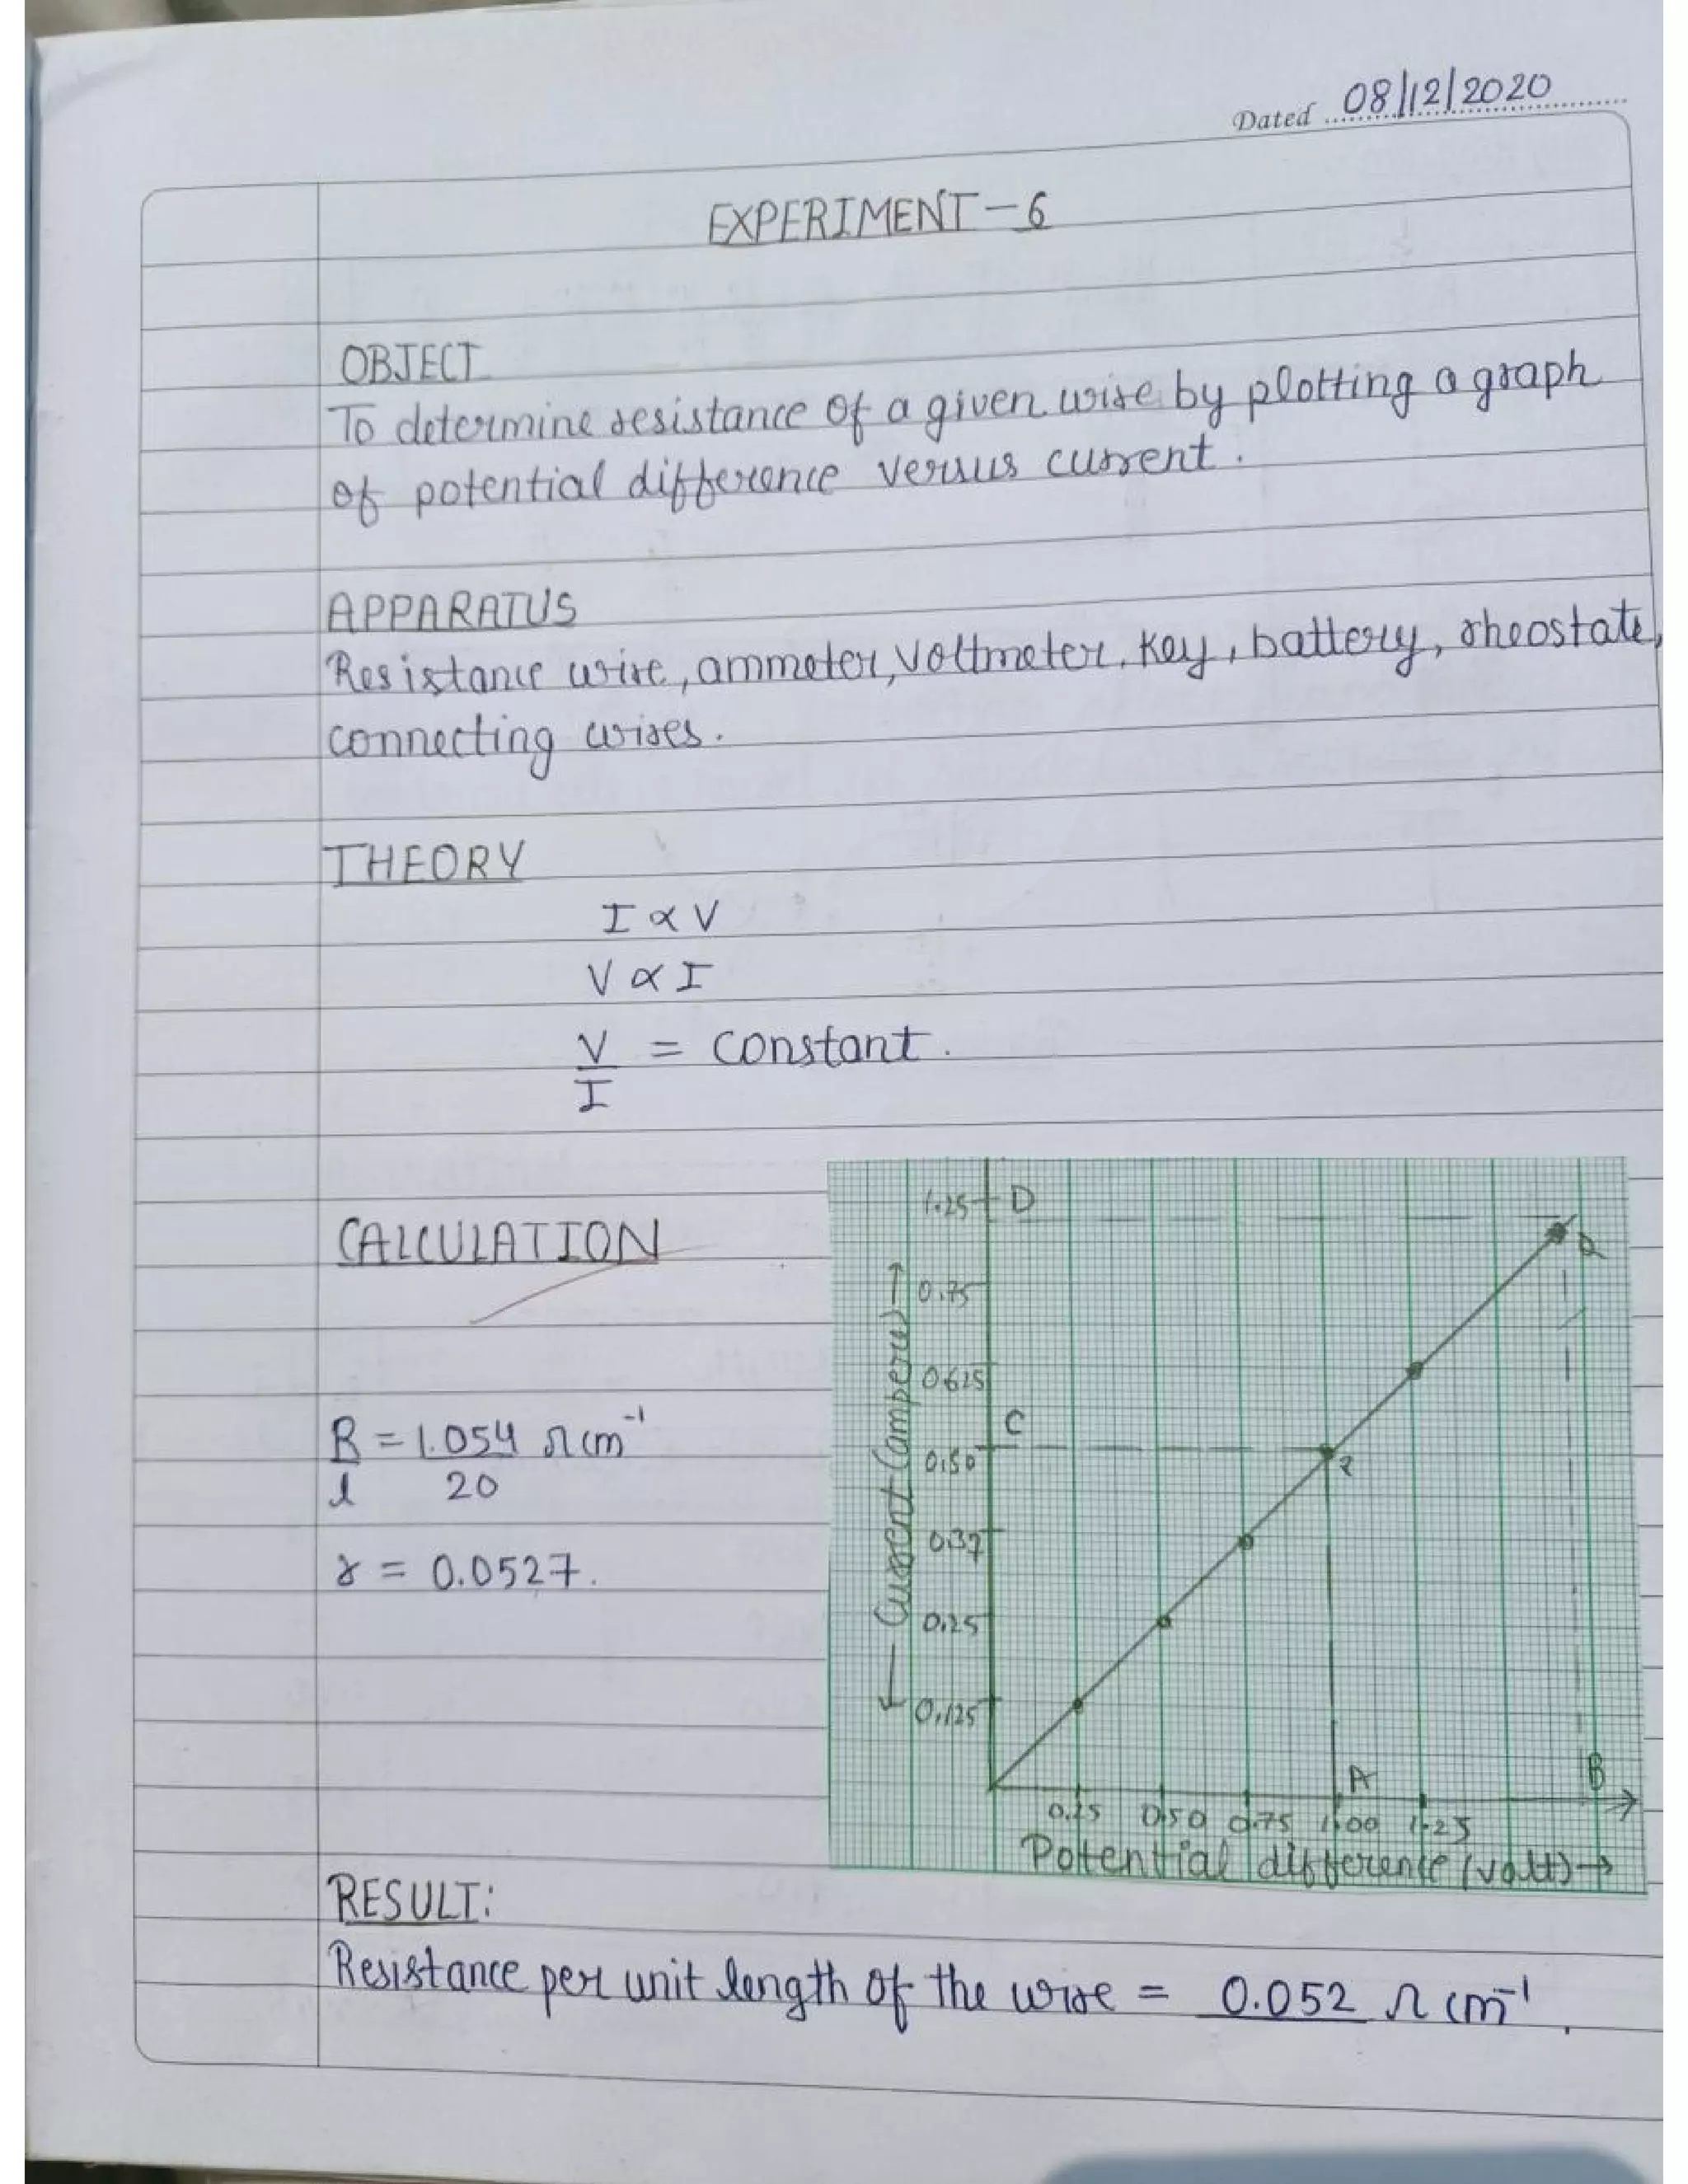 Dated 08/12/2020
EXPERIMENT-6
OBJECT
To determine resistance of a given wire by plotting a graph
of potential difference versus current.
APPARATUS
Resistance wire, ammeter, voltmeter, key, battery, rheostate,
connecting wires.
THEORY
I ∝ V
V ∝ I
V/I = constant.
CALCULATION
R/l = 1.054/20 Ω cm⁻¹
r = 0.0527.
1.25 D
0.75
0.625
C
0.50
0.37
0.25
0.125
Current (ampere)
A B
0.25 0.50 0.75 1.00 1.25
Potential difference (volt) →
RESULT:
Resistance per unit length of the wire = 0.052 Ω cm⁻¹.